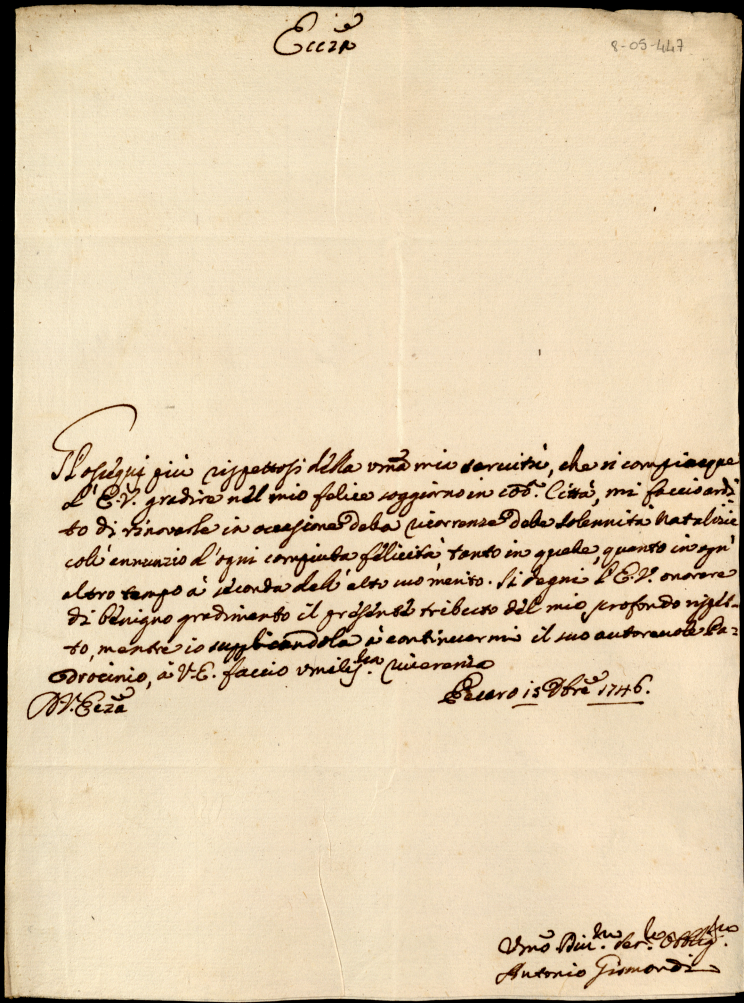 Ecc.za
8-05-447
Gl'ossequj più rispettosi della Um̃a mia servitù, che si compiacque
l'E.V. gradire nel mio felice soggiorno in cod.ª Città, mi faccio ardi
to di rinovarle in occasione della ricorrenza delle Solennità Natalizie
coll'annunzio d'ogni compiuta felicità tanto in quelle, quanto in ogn'
altro tempo à seconda dell'alto suo merito. Si degni l'E.V. onorare
di benigno gradimento il presente tributo del mio profondo rispet=
to, mentre io supplicandola à continuarmi il suo autorevole Pa=
drocinio, à V.E. faccio umiliss.ma riverenza
D.V. Ecc.za
Pesaro 15 Xbre 1746.
Um̃o Div.mo Ser.re Obblig.mo
Antonio Gismondi